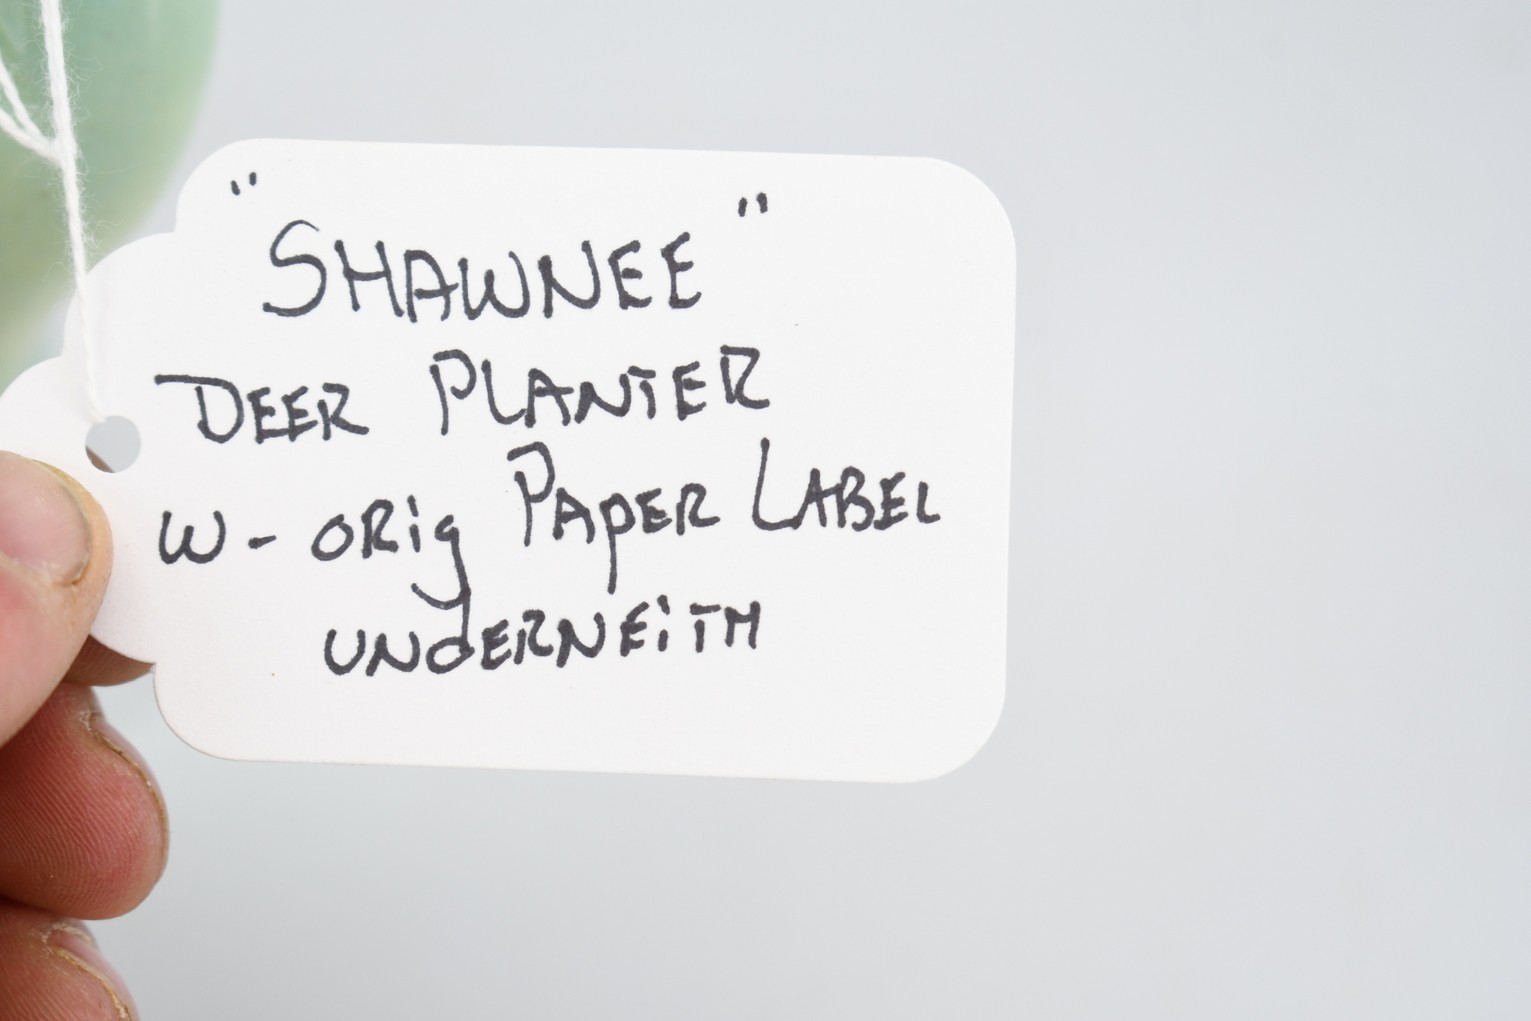 "SHAWNEE"
DEER PLANTER
W- ORig PAPER LABEL
UNdERNEiTH